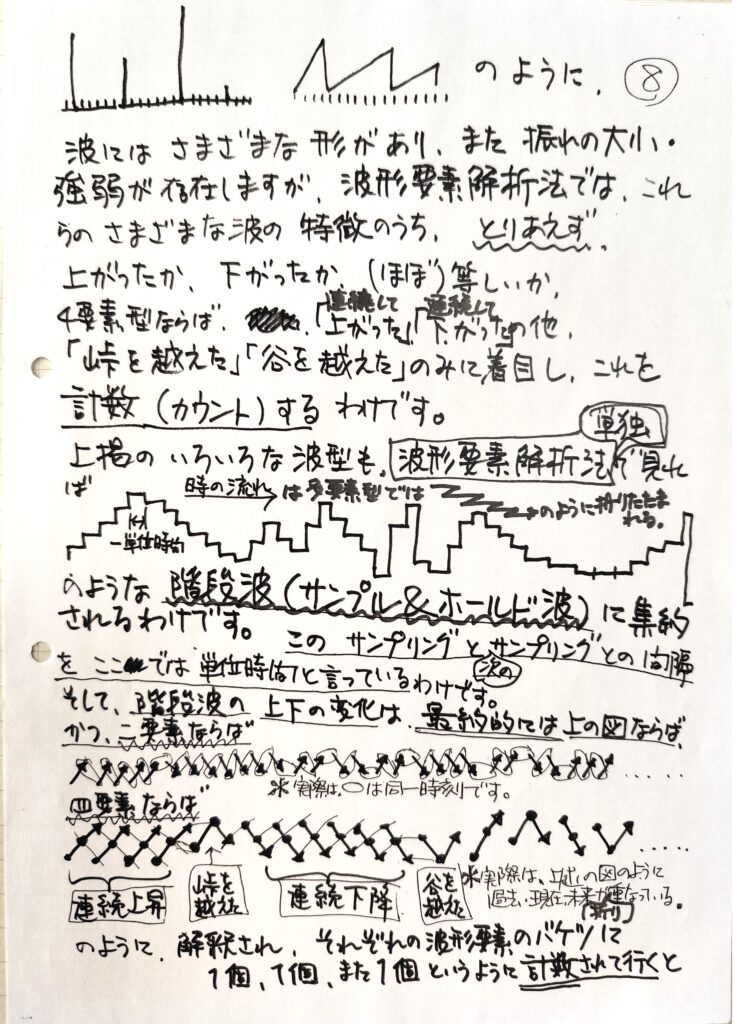 のように、 ⑧
波にはさまざまな形があり、また振れの大小・
強弱が存在しますが、波形要素解析法では、これ
らのさまざまな波の特徴のうち、とりあえず、
上がったか、下がったか、(ほぼ)等しいか、
4要素型ならば、「連続して上がった」「連続して下がった」の他、
「峠を越えた」「谷を越えた」のみに着目し、これを
計数(カウント)するわけです。
上掲のいろいろな波型も、単独波形要素解析法で見れ
ば
時の流れ→は多要素型では
のように折りたたまれる。
一単位時間
のような階段波(サンプル&ホールド波)に集約
されるわけです。
このサンプリングと次のサンプリングとの間隔
をここでは単位時間と言っているわけです。
そして、階段波の上下の変化は、最終的には上の図ならば、
かつ、二要素ならば
……
※実際は、○は同一時刻です。
四要素ならば
……
連続上昇
峠を越えた
連続下降
谷を越えた
※実際は、上述の図のように
過去、現在、未来が重なっている。
(折り)
のように、解釈され、それぞれの波形要素のバケツに
1個、1個、また1個というように計数されて行くと